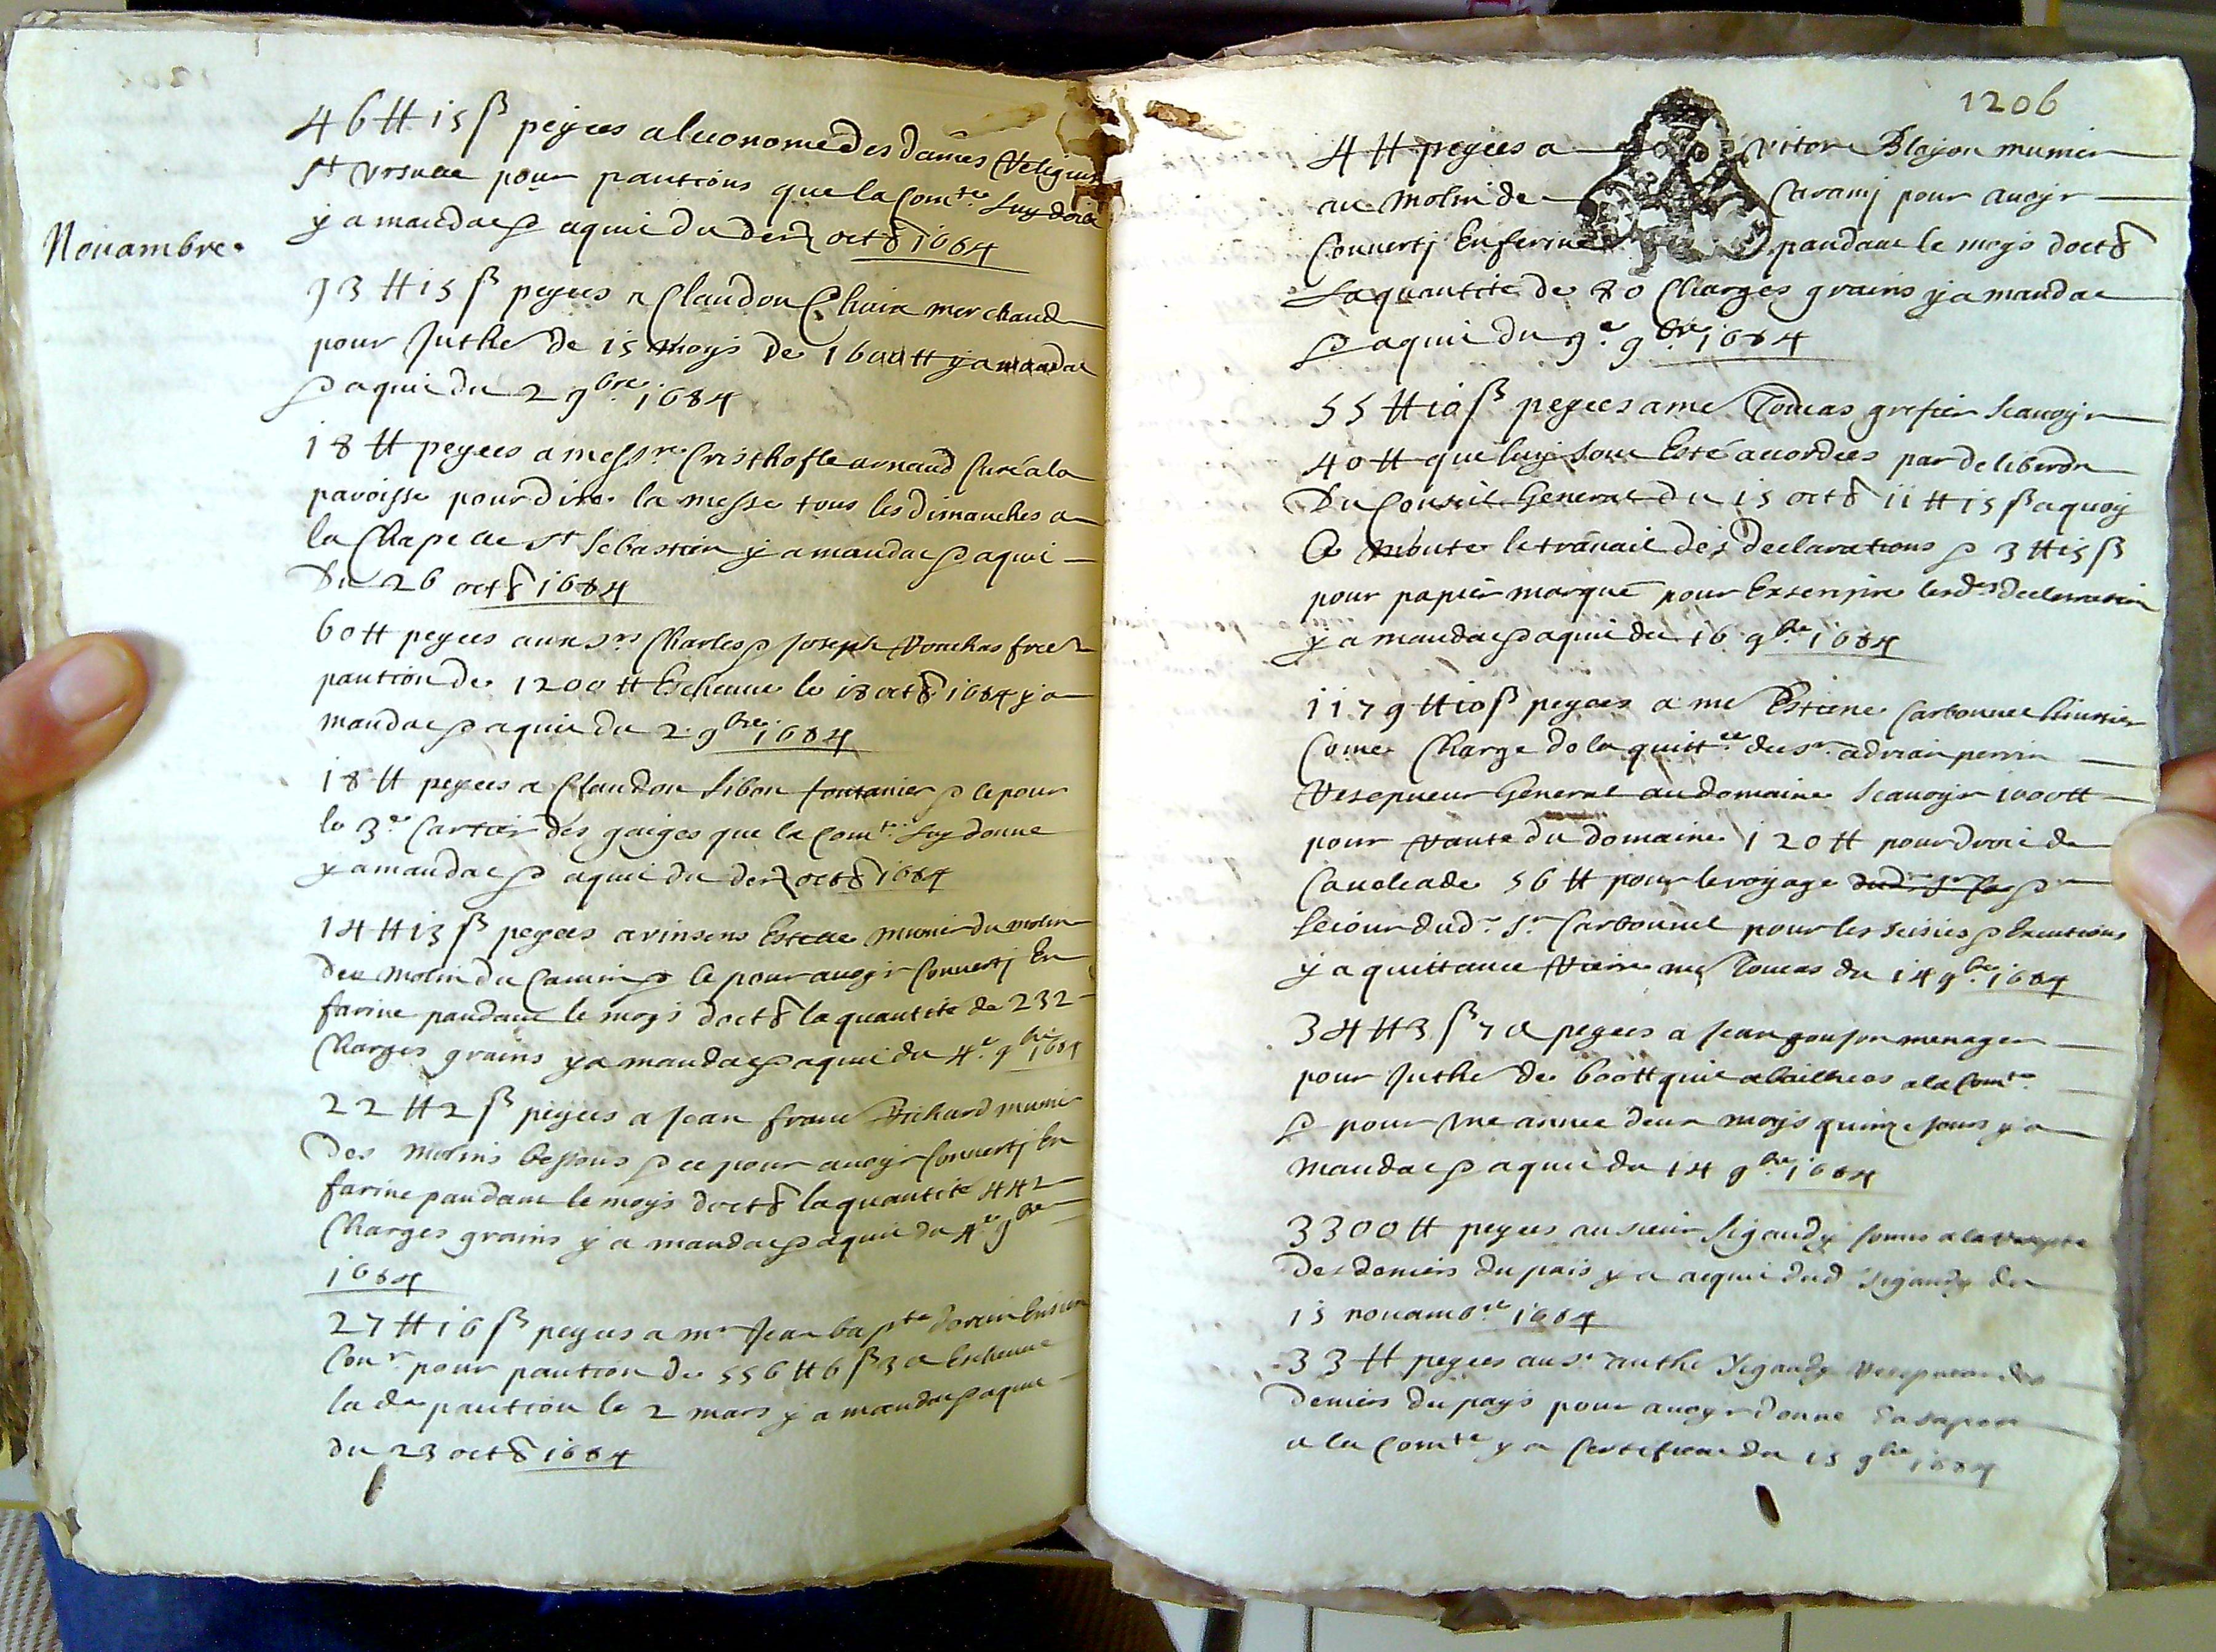 46 tt 15 ß peyees a leconome des dames Religius
St Ursule pour pantions que la Comte luy doibt
y a mandat & aquit du der octo 1684
Nouambre.
93 tt 15 ß peyees a Claudon Chaix merchand
pour Juthe de 15 moys de 1600 tt y a mandat
& aquit du 2 9bre 1684
18 tt peyees a messre Cristhofle arnaud Curé a la
paroisse pour dire la messe tous les dimanches a
la Chapelle St Sebastien y a mandat & aquit
Du 26 octo 1684
60 tt peyees aux Srs Charles & Joseph
pantion de 1200 tt Escheue le 18 octo 1684 y a
mandat & aquit du 2 9bre 1684
18 tt peyees a Claudon Sibon fontanier & ce pour
le 3e Cartier des gaiges que la Comte luy donne
y a mandat & aquit du der octo 1684
14 tt 13 ß peyees a vinsens Estelle munier du molin
Deu molin du Camin & ce pour auoyr Conuerty En
farine pandant le moys docto la quantité de 232
Charges grains y a mandat & aquit du 4e 9bre 1684
22 tt 2 ß peyees a Jean franc Richard munier
Des molins bessons & ce pour auoyr Conuerty En
farine pandant le moys docto la quantité 442
Charges grains y a mandat & aquit du 4e 9bre
1684
27 tt 16 ß peyees a mr Jean bapte
Conr pour pantion de 556 tt 6 ß 3 d Escheue
la de pantion le 2 mars y a mandat & aquit
du 23 octo 1684
1206
4 tt peyees a victor Blayon munier
au molin de Caramj pour auoyr
Conuertj En farine pandant le moys docto
La quantité de 80 Charges grains y a mandat
& aquit du 9e 9bre 1684
55 tt 10 ß peyees a me Toucas grefier scauoyr
40 tt que luy sont Esté acordees par deliberon
Du Conseil General du 15 octo 11 tt 15 ß a quoy
a monte le trauail des declarations & 3 tt 15 ß
pour papier marque pour Exscripre lesds declaration
y a mandat & aquit du 16 9bre 1684
1179 tt 10 ß peyees a me Estiene Carbonnel huissier
Come Charge de la quittce du Sr adrian perrin
Resepueur General au domaine scauoyr 1000 tt
pour vante du domaine 120 tt pour droit de
Caualcade 56 tt pour le voyage &
seiour dudt Sr Carbonnel pour les seisies & Executions
y a quittance Riere me Toucas du 14 9bre 1684
34 tt 3 ß 7 d peyees a Jean goujon menager
pour Juthe de 600 tt quil a bailhees a la Comte
& pour vne annee deux moys quinze jours y a
mandat & aquit du 14 9bre 1684
3300 tt peyees au sieur Sigaudy Comis a la Recepte
Des deniers du pais y a aquit dud Sigaudy du
15 nouambre 1684
33 tt peyees au Sr anthe Sigaudy Resepueur des
Deniers du pays pour auoyr donne
a la Comte y a Certificat du 15 9bre 1684